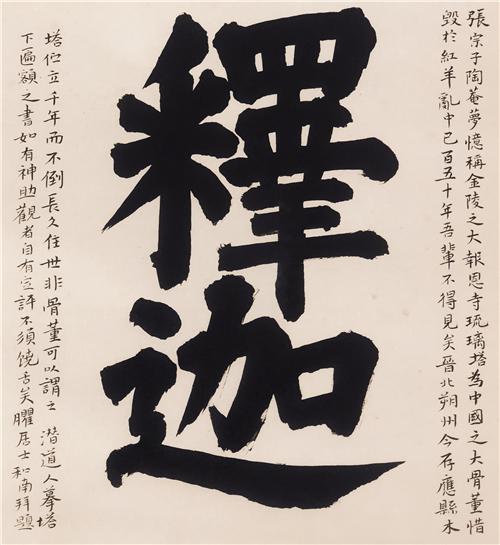 張宗子陶菴夢憶稱金陵之大報恩寺琉璃塔為中國之大骨董惜
毀於紅羊亂中已百五十年吾輩不得見矣晉北朔州今存應縣木
釋迦
塔伫立千年而不倒長久住世非骨董可以謂之 潜道人摹塔
下匾額之書如有神助觀者自有定評不須饶舌矣臞居士和南拜題